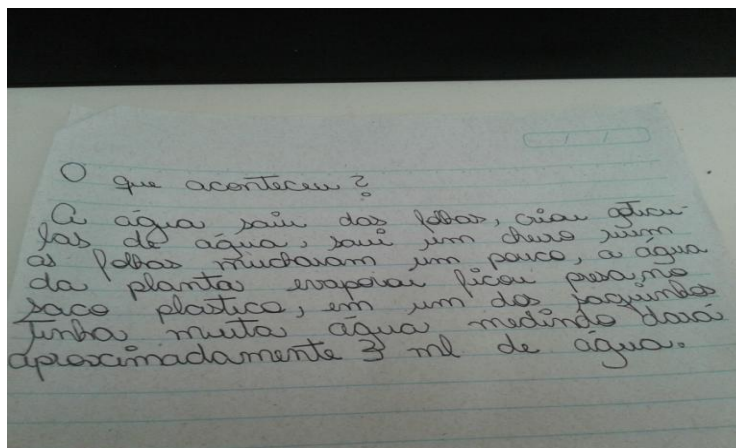 O que aconteceu?
A água saiu das folhas, criou gotícu-
las de água, saiu um cheiro ruim
as folhas mucharam um pouco, a água
da planta evaporou ficou presa no
saco plastico, em um dos saquinhos
tinha muita água medindo dará
aproximadamente 3 ml de água.